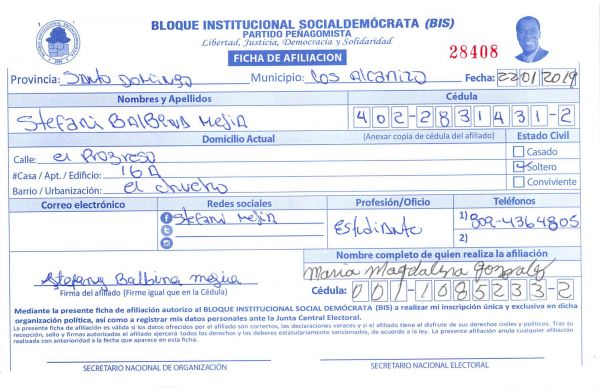 BLOQUE INSTITUCIONAL SOCIALDEMÓCRATA (BIS)
PARTIDO PEÑAGOMISTA
Libertad, Justicia, Democracia y Solidaridad
FICHA DE AFILIACION
28408
Provincia: Santo Domingo Municipio: Los Alcarrizo Fecha: 22 01 2019
Nombres y Apellidos Cédula
Stefani BALBENA Mejia 402-2831431-2
Domicilio Actual (Anexar copia de cédula del afiliado) Estado Civil
Calle: el Progreso Casado
#Casa / Apt. / Edificio: 16 A Soltero
Barrio / Urbanización: el chucho Conviviente
Correo electrónico Redes sociales Profesión/Oficio Teléfonos
Stefani Mejia Estudiante 1) 809-4364805
2)
Nombre completo de quien realiza la afiliación
Stefany Balbina mejia Maria Magdalena Gonzalez
Firma del afiliado (Firme igual que en la Cédula) Cédula: 001-1085233-2
Mediante la presente ficha de afiliación autorizo al BLOQUE INSTITUCIONAL SOCIAL DEMÓCRATA (BIS) a realizar mi inscripción única y exclusiva en dicha
organización política, así como a registrar mis datos personales ante la Junta Central Electoral.
La presente ficha de afiliación es válida si los datos ofrecidos por el afiliado son correctos, las declaraciones veraces y si el afiliado tiene el disfrute de sus derechos civiles y políticos. Tras su
recepción, sello y firmas autorizadas el afiliado ejercerá todos los derechos y los deberes estatutariamente sancionados, de acuerdo a la ley. La presente afiliación anula cualquier afiliación
realizada con anterioridad a la fecha que aparece en esta ficha.
SECRETARIO NACIONAL DE ORGANIZACIÓN SECRETARIO NACIONAL ELECTORAL